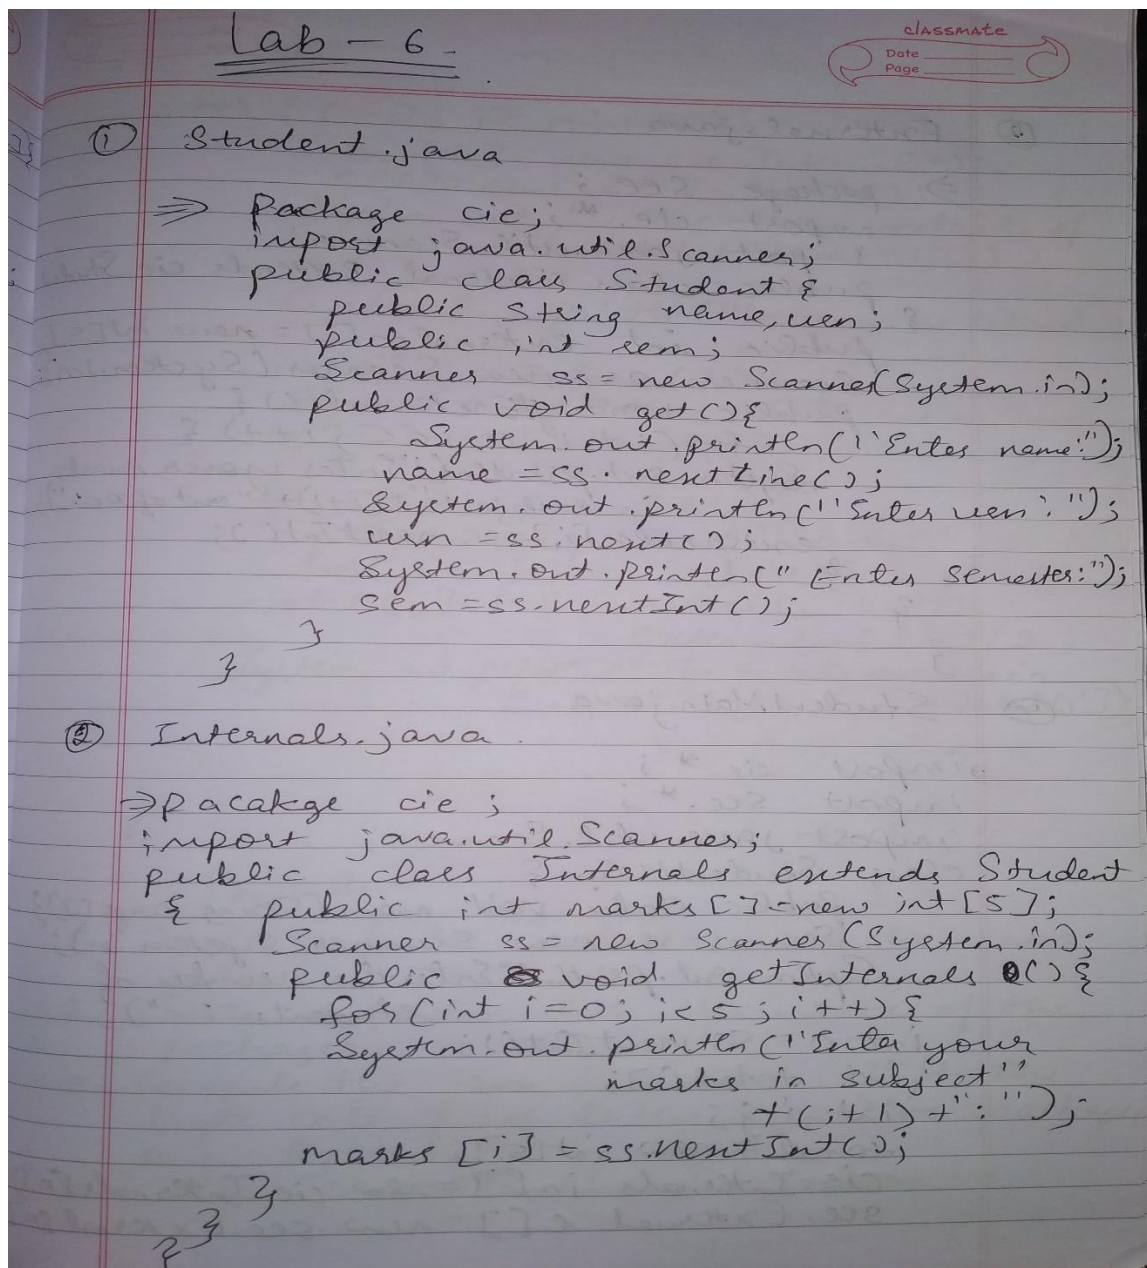 Lab - 6 -
classmate
Date
Page
① Student.java
⇒ Package cie;
import java.util.Scanner;
public class Student {
public String name, usn;
public int sem;
Scanner ss = new Scanner(System.in);
public void get () {
System.out.println("Enter name:");
name = ss.nextLine();
System.out.println("Enter usn: ");
usn = ss.next();
System.out.println(" Enter Semester:");
sem = ss.nextInt();
}
}
② Internals.java
⇒ pacakge cie ;
import java.util.Scanner;
public class Internals extends Student
{ public int marks [ ] = new int [5];
Scanner ss = new Scanner (System.in);
public void getInternals () {
for (int i=0; i<5; i++) {
System.out.println("Enter your
marks in subject"
+(i+1)+": ");
marks [i] = ss.nextInt();
}
}
}